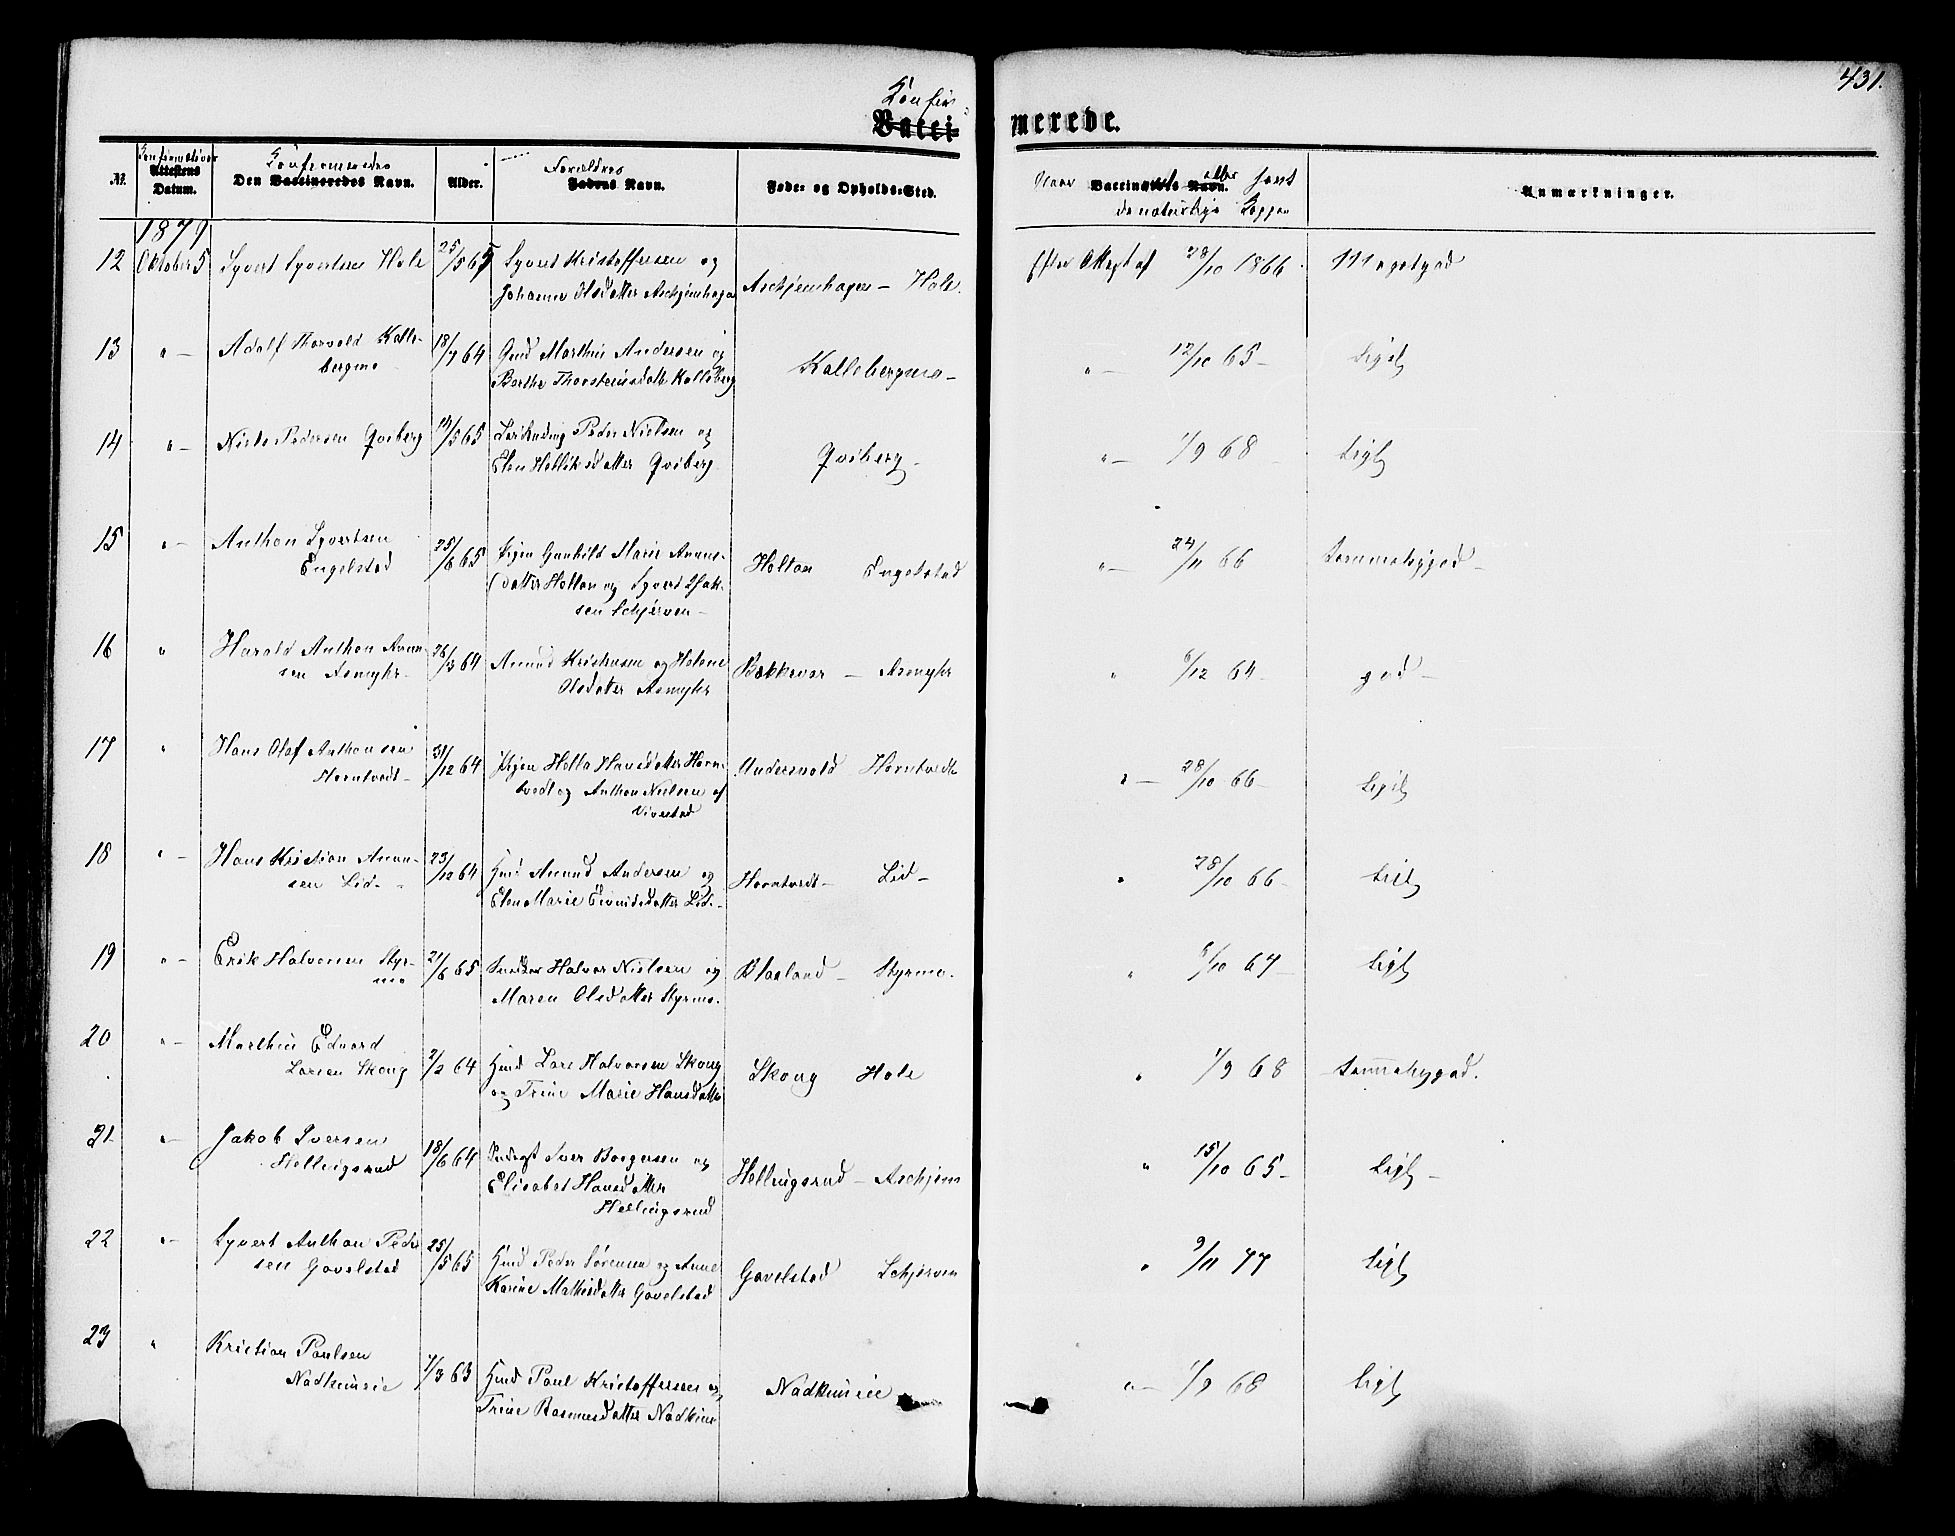 431.
Konfir
Vacci- merede.
№
Konfirmations
Attestens Datum.
Konfirmeredes
Den Vaccineredes Navn.
Alder.
Forældres
Fadrens Navn.
Føde- og Opholds-Sted.
Naar Vaccineret eller havt
de naturlige Kopper
Anmærkninger.
1879
12 Oktober 5 Syvert Syvertsen Hole 25/5 65 Syvert Kristoffersen og
Johanne Olsdatter Aschjemhagen Aschjemhagen – Hole. Efter Attest af 28/10 1866. Megetgod
13 " – Adolf Thorvald Kalle-
bergmo 18/7 64 Gmd Marthin Andersen og
Berthe Thorstensdattr Kalleberg Kallebergmo – " – 12/10 65 – Ligel
14 " – Niels Pedersen Qviberg 19/5 65 Peder Nielsen og
Elen Helliksdatter Qviberg Qviberg – " – 1/9 68 – Ligl
15 " – Anthon Syvertsen
Engelstad 25/6 65 Pigen Gunhild Marie Amuns-
datter Holtan og Syvert Isak-
sen Schjerven – Holtan Engelstad " – 24/11 66 Temmeliggod –
16 " Harald Anthon Amun-
sen Asmyhr – 26/3 64 Amund Kristiansen og Helene
Olsdatter Asmyhr Bækkevar – Asmyhr " 6/12 64 – god –
17 " Hans Olaf Anthonsen
Horntvedt – 31/12 64 Pigen Hella Hansdatter Horn-
tvedt og Anthon Nielsen af
Vivestad Undersvold Horntvedt " – 28/10 66 – Ligel
18 " – Hans Kristian Amun-
sen Lid – 23/12 64 Hmd Amund Andersen og
Elen Marie Eivindsdatter Lid – Horntvedt – Lid – " 28/10 66 – Ligl
19 " – Erik Halvorsen Styr-
mo 21/6 65 Snedker Halvor Nielsen og
Maren Olsdatter Styrmo. Blaaland – Styrmo. " 8/10 67 – Ligl
20 " – Marthin Edvard
Larsen Skoug 2/2 64 Hmd Lars Halvorsen Skoug
og Trine Marie Hansdatter Skoug Hole " 1/9 68 Temmeliggod.
21 " – Jakob Iversen
Hellingsrud 18/6 64 Indergst Iver Borgersen og
Elisabet Hansdatter
Hellingsrud Hellingsrud – Aschjem " 15/10 65 – Ligl –
22 " – Syvert Anthon Peder
sen Gavelstad 25/5 65 Hmd Peder Sørensen og Anne
Karine Mathisdatter Gavelstad Gavelstad Schjerven " 9/11 77 Ligl
23 " Kristian Paulsen
Nadkinseie 1/3 63 Hmd Paul Kristoffersen og
Trine Rasmusdatter Nadkins Nadkinseie " – 1/9 68 Ligl